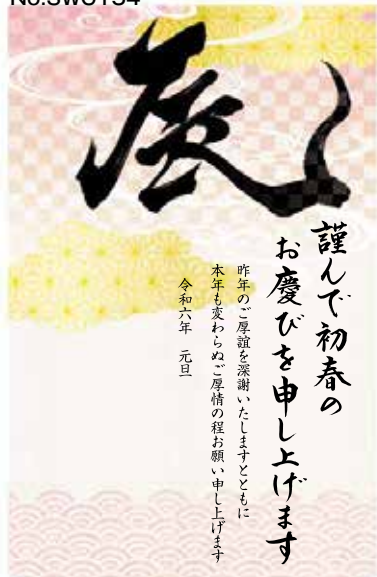 No.SWC134
辰
謹んで初春の
お慶びを申し上げます
昨年のご厚誼を深謝いたしますとともに
本年も変わらぬご厚情の程お願い申し上げます
令和六年 元旦